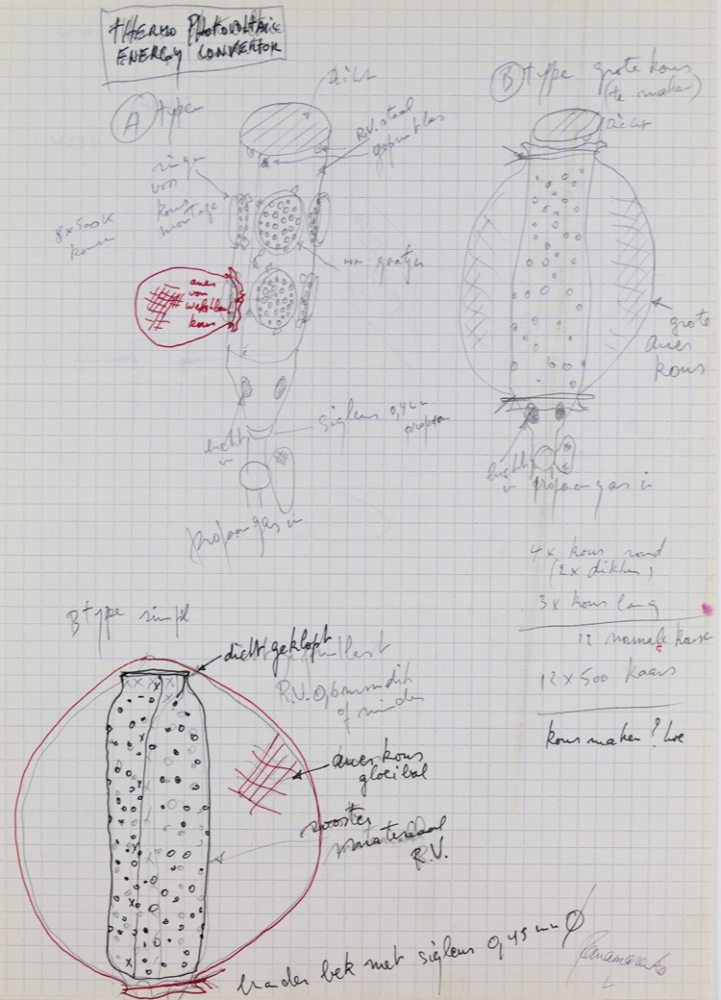 THERMO PHOTOVOLTAIC
ENERGY CONVERTOR
A type
dicht
R.V. staal
gepuntlas
ringen
voor
kous
montage
8 x 500 K
kousen
auer
kous
mm gaatjes
lucht
in
sigleur 0,4 mm
propaan
propaan gas in
B type grote kous
(te maken)
dicht
grote
auer
kous
lucht
in
propaan gas in
4 x kous rond
(2 x dikker)
3 x kous lang
12 normale kousen
12 x 500 kaars
kous maken? hoe
B type simpel
dicht geklopt
R.V. 0,6 mm dik
of minder
auer kous
gloeibal
rooster
materiaal
R.V.
brander bek met sigleur 0,45 mm Ø
Panamarenko